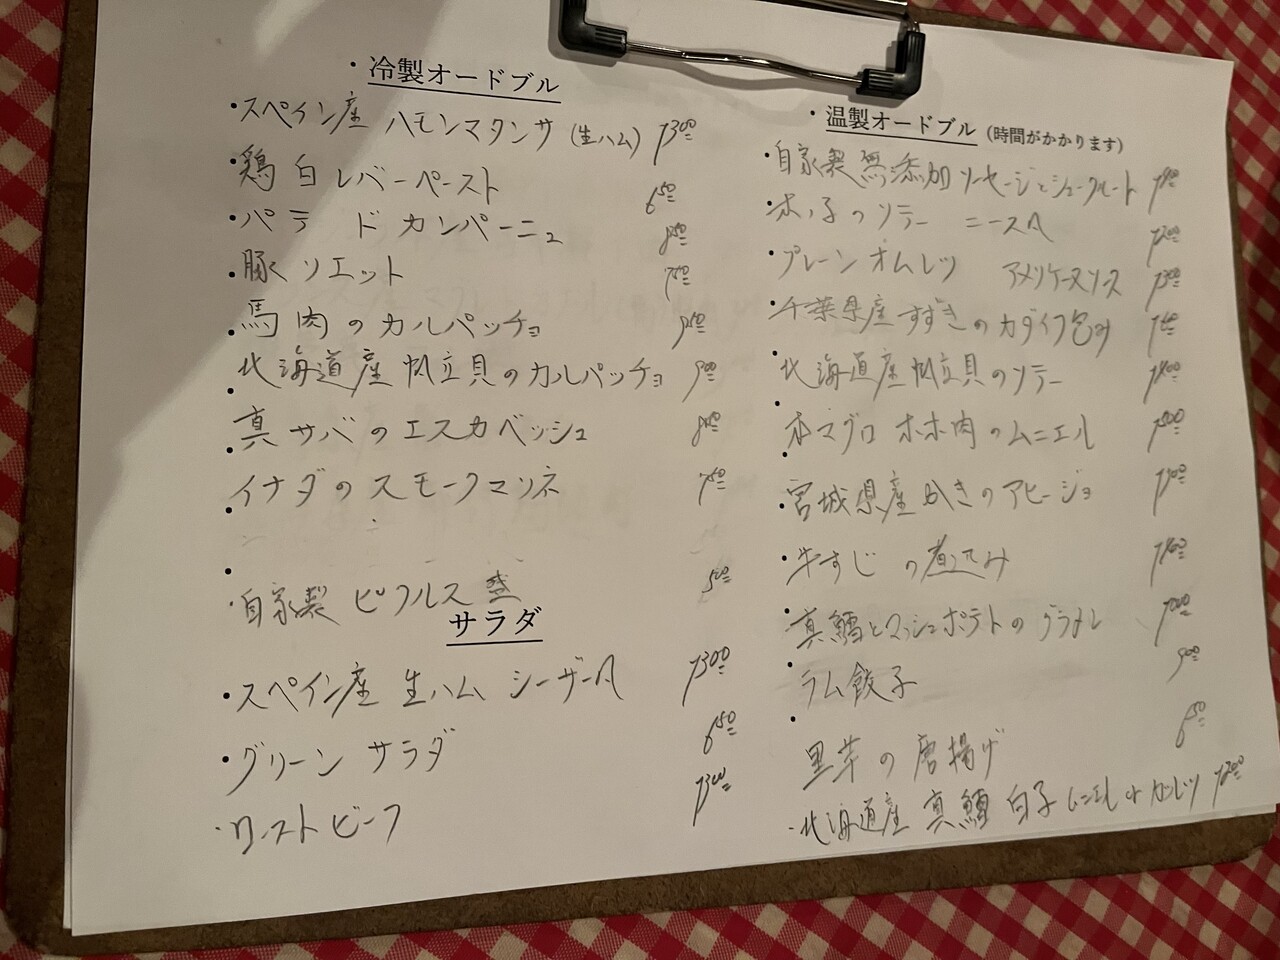 ・冷製オードブル
・スペイン産 ハモンマタンサ (生ハム) 1300
・鶏白レバーペースト 650
・パテ ド カンパーニュ
・豚リエット 750
・馬肉のカルパッチョ
・北海道産帆立貝のカルパッチョ 900
・真サバのエスカベッシュ
・イナダのスモークマリネ 750
・自家製ピクルス盛 500
サラダ
・スペイン産 生ハム シーザー風 1300
・グリーンサラダ 650
・ローストビーフ 1300
・温製オードブル (時間がかかります)
・自家製無添加ソーセージとシュークルート
・きのこのソテー ニース風 1200
・プレーンオムレツ アメリケーヌソース 1300
・千葉県産すずきのカダイフ包み
・北海道産帆立貝のソテー 1400
・本マグロ ホホ肉のムニエル 1500
・宮城県産かきのアヒージョ
・牛すじの煮込み
・真鱈とマッシュポテトのグラタン
・ラム餃子 900
・里芋の唐揚げ 650
・北海道産 真鱈 白子 ムニエル or カツレツ